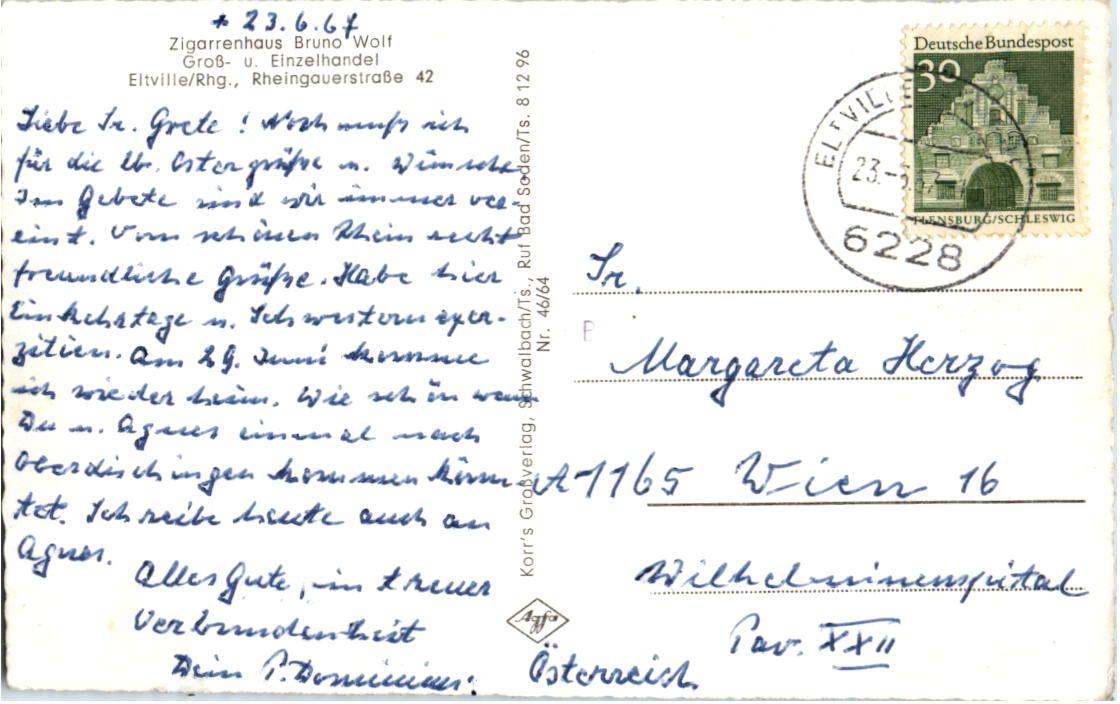 * 23.6.67
Zigarrenhaus Bruno Wolf
Groß- u. Einzelhandel
Eltville/Rhg., Rheingauerstraße 42
Liebe Sr. Grete! Noch muß ich
für die lb. Ostergrüße u. Wünsche
Im Gebete sind wir immer ver-
eint. Vom schönen Rhein recht
freundliche Grüße. Habe hier
Einkehrtage u. Schwesternexer-
zitien. Am 29. Juni komme
ich wieder heim. Wie schön wenn
Du u. Agnes einmal nach
Oberdischingen kommen könn-
tet. Schreibe heute auch an
Agnes.
Alles Gute, in treuer
Verbundenheit
Dein P. Dominicus.
Korr's Großverlag, Schwalbach/Ts., Ruf Bad Soden/Ts. 8 12 96
Nr. 46/64
Agfa
Deutsche Bundespost
30
FLENSBURG/SCHLESWIG
ELTVILLE
23.-6.67
6228
Sr.
Margareta Herzog
A-1165 Wien 16
Wilhelminenspital
Pav. XXII
Österreich